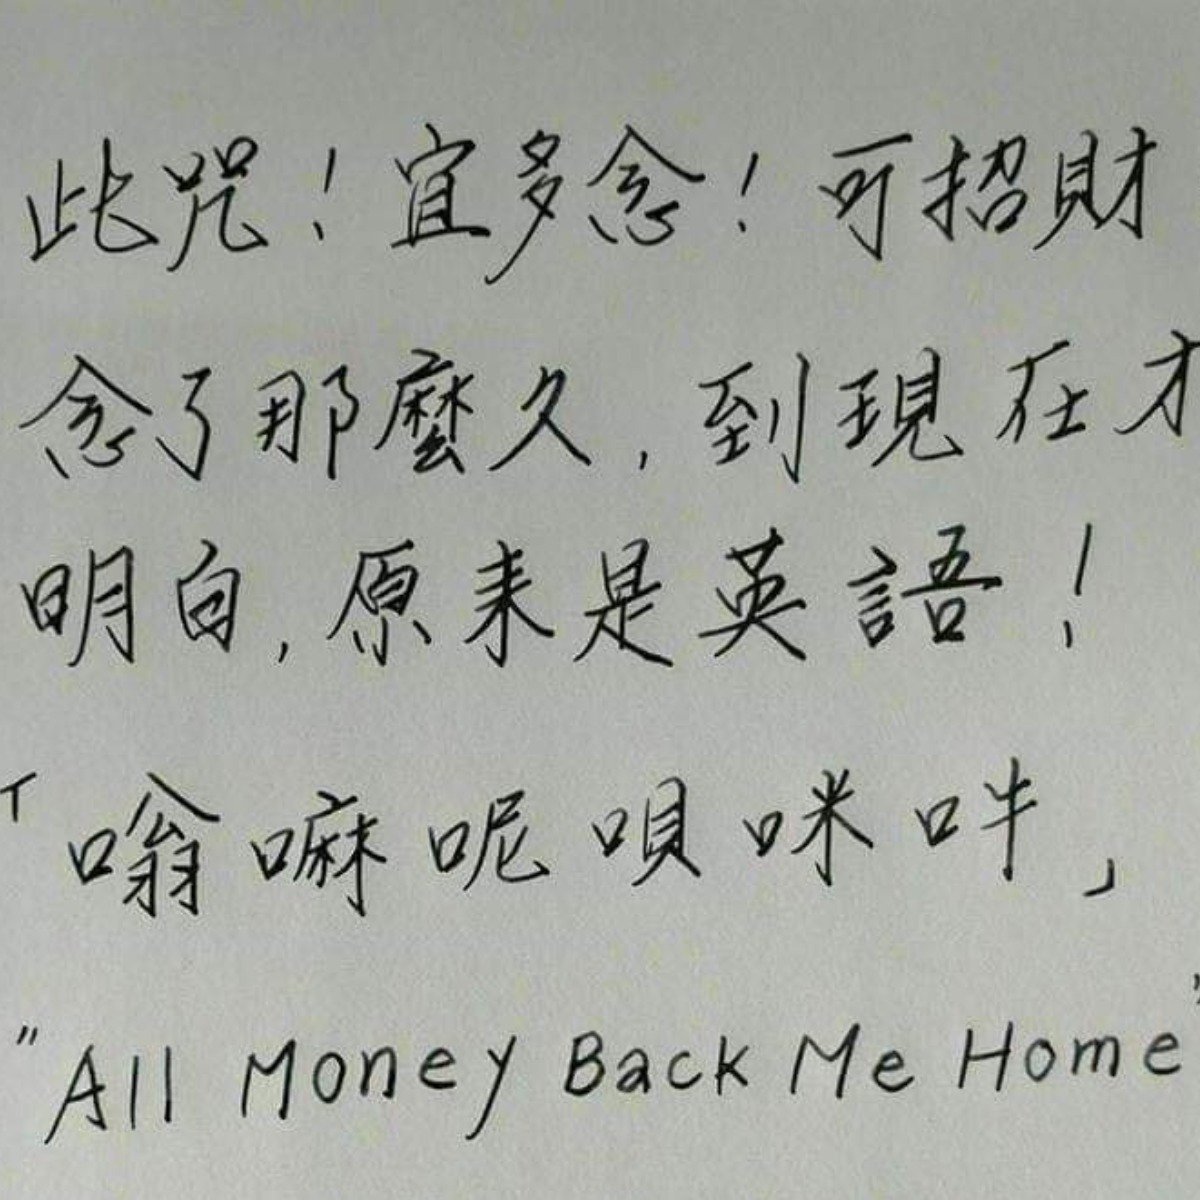 此咒！宜多念！可招財
念了那麼久，到現在才
明白，原来是英語！
「嗡嘛呢唄咪吽」
"All Money Back Me Home"